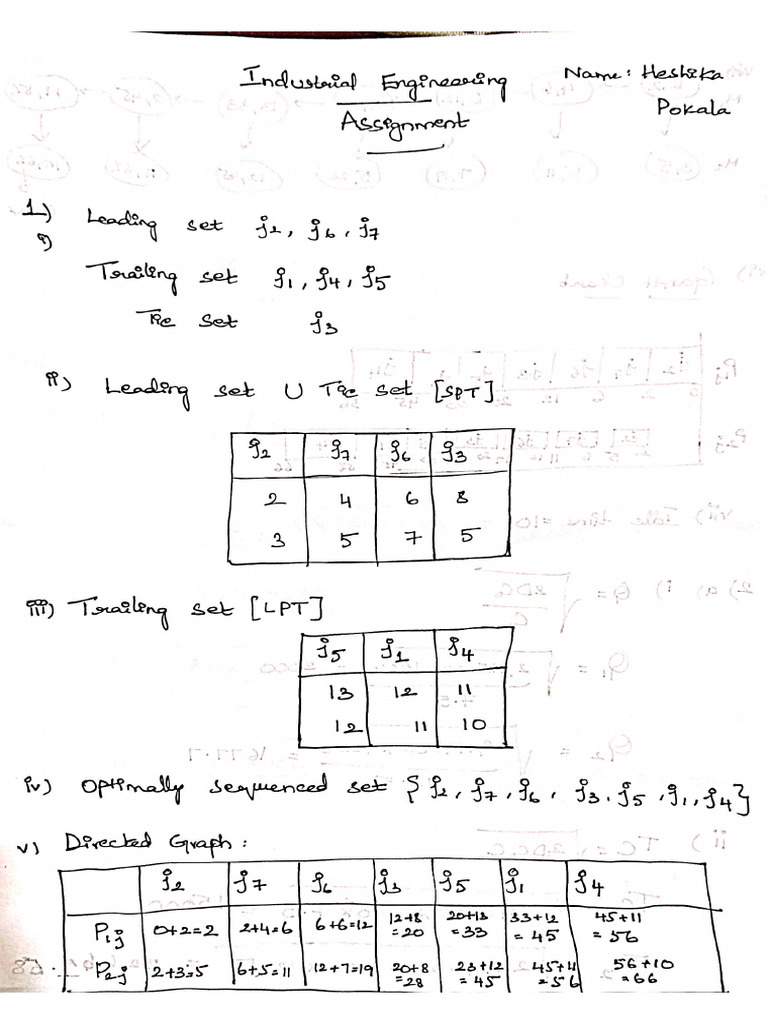 Industrial Engineering
Assignment
Name: Heshika
Pokala
1)
i) Leading set j2, j6, j7
Trailing set j1, j4, j5
Tie set j3
ii) Leading set U Tie set [SPT]
j2 j7 j6 j3
2 4 6 8
3 5 7 5
iii) Trailing set [LPT]
j5 j1 j4
13 12 11
12 11 10
iv) Optimally sequenced set {j2, j7, j6, j3, j5, j1, j4}
v) Directed Graph:
j2 j7 j6 j3 j5 j1 j4
P1j 0+2=2 2+4=6 6+6=12 12+8=20 20+13=33 33+12=45 45+11=56
P2j 2+3=5 6+5=11 12+7=19 20+8=28 23+12=45 45+11=56 56+10=66